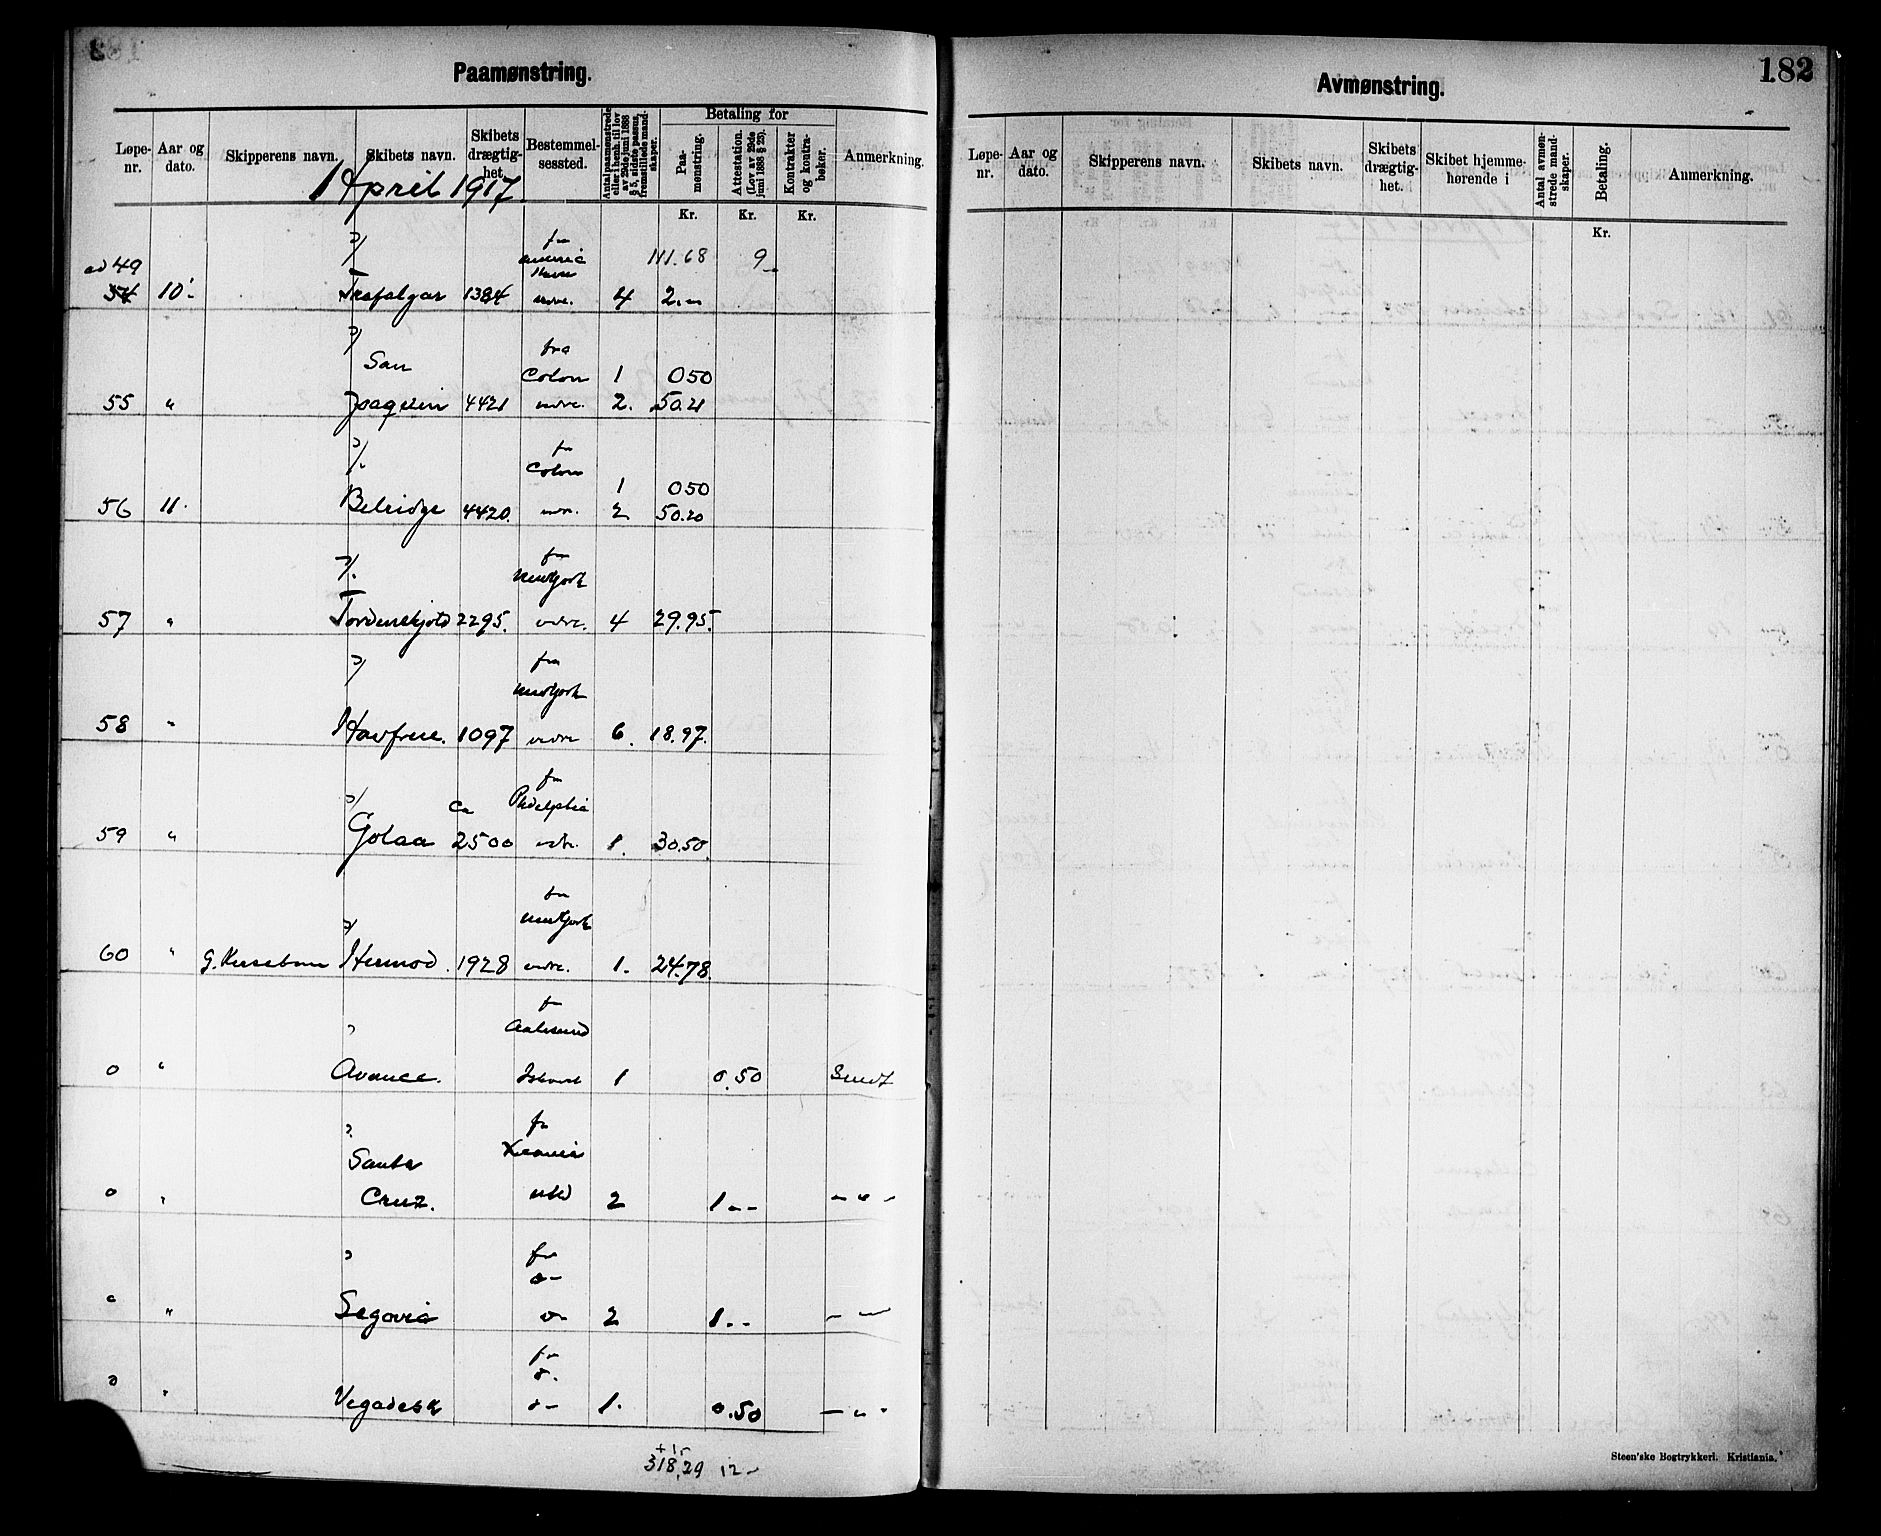 Paamønstring.
Løpe-nr. Aar og dato. Skipperens navn. Skibets navn. Skibets drægtig-het. Bestemmel-sessted. Antal paamønstrede eller i henh. til lov av 29de juni 1888 § 5, sidste passus, fremstillede mand-skaper. Betaling for Paa-mønstring. Attestation. (Lov av 29de juni 1888 § 23). Kontrakter og kontra-bøker. Anmerkning.
1 April 1917
Kr. Kr. Kr.
111.68 9
ad 49
54 10 Trafalgar 1384 4 2.
San fra Colon 1 050
55 " Joaquin 4421 2. 50.21
fra Colon 1 050
56 11. Belridge 4420. 2 50.20
fra NewYork
57 " Tordenskjold 2295. vidre. 4 29.95.
fra NewYork
58 " Havfrue. 1097 vidre 6. 18.97.
Ca fra
59 " Golaa 2500 vidre. 1. 30.50.
fra NewYork
60 " Hermod. 1928 vidre. 1. 24.78.
fra Aalesund
0 " Avance. 1 0.50 Sendt
fra
Santa
0 " Cruz. 2 1 -- - " -
fra
o-
0 " Segovia o- 2 1 -- - " -
fra
o.
0 " o- 1. 0.50 - " -
+ 1
318,29 12-
Avmønstring.
182
Løpe-nr. Aar og dato. Skipperens navn. Skibets navn. Skibets drægtig-het. Skibet hjemme-hørende i Antal avmøn-strede mand-skaper. Betaling. Anmerkning.
Kr.
Steen'ske Bogtrykkeri. Kristiania.